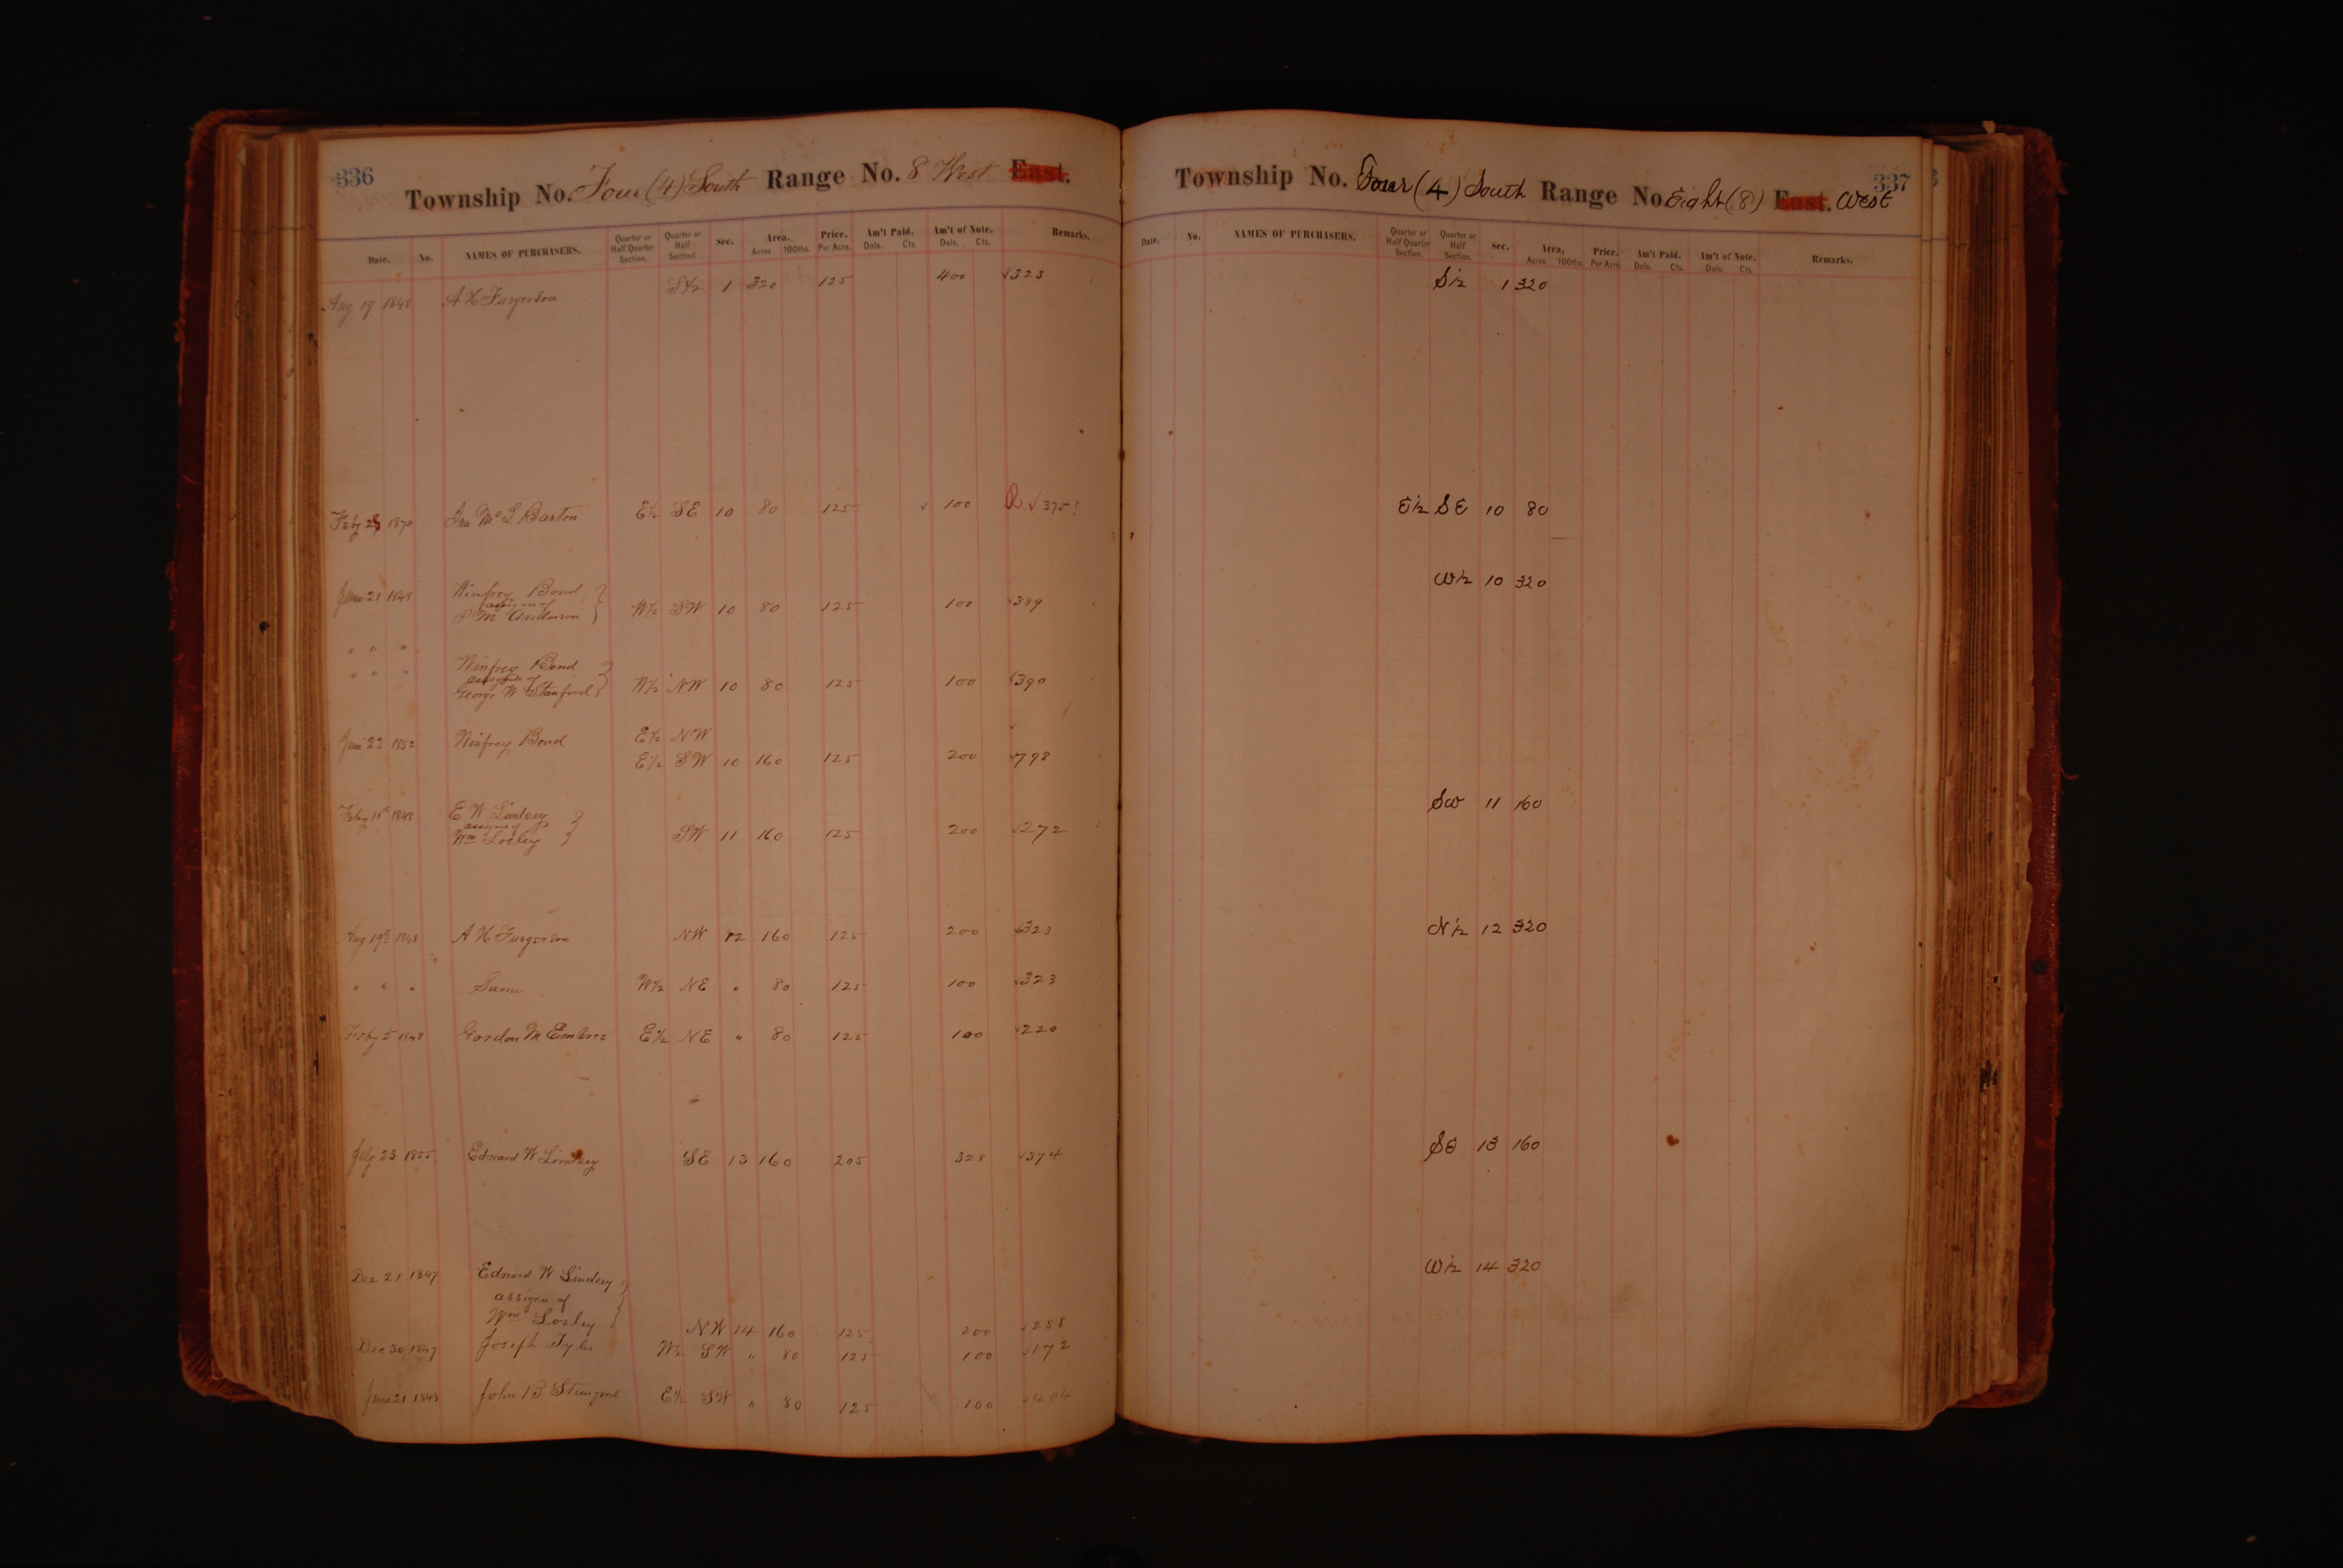 336
Township No. Four (4) South Range No. 8 West East.
Date. No. NAMES OF PURCHASERS. Quarter or Half Quarter Section. Quarter or Half Section. Sec. Area. Acres 100ths. Price. Per Acre. Am't Paid. Dols. Cts. Am't of Note. Dols. Cts. Remarks.
Aug 19 1848 A H Furgerson S½ 1 320 125 400 √323
Feby 28 1870 Mc L Barton E½ SE 10 80 125 √ 100 √375!
June 21 1848 Winfrey Bond
assignee of
M Anderson W½ SW 10 80 125 100 √389
" " "
" " " Winfrey Bond
assignee of
George W Stanford W½ NW 10 80 125 100 √390
June 22 1852 Winfrey Bond E½ NW
E½ SW 10 160 125 200 √798
Feby 11th 1848 E W Lindsey
assignee of
Wm Losley SW 11 160 125 200 √272
Aug 19th 1848 A H Furgerson NW 12 160 125 200 √323
" " " Same W½ NE " 80 125 100 √323
Feby 5 1848 Gordon M Embree E½ NE " 80 125 100 √220
July 23 1855 Edward W Lindsey SE 13 160 205 328 √374
Dec 21 1847 Edward W Lindsey
assignee of
Wm Losley NW 14 160 125 200 √258
Dec 30 1847 Joseph Tyler W½ SW " 80 125 100 √172
June 21 1848 John B E½ SW " 80 125 100 √404
337
Township No. Four (4) South Range No. Eight (8) East. West
Date. No. NAMES OF PURCHASERS. Quarter or Half Quarter Section. Quarter or Half Section. Sec. Area. Acres 100ths. Price. Per Acre. Am't Paid. Dols. Cts. Am't of Note. Dols. Cts. Remarks.
S½ 1 320
E½ SE 10 80
W½ 10 320
SW 11 160
N½ 12 320
SE 13 160
W½ 14 320